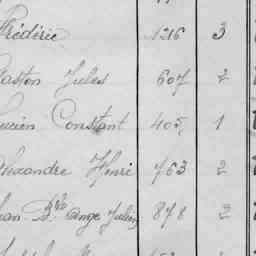 Frédéric 1216 3
Gaston Jules 607 2
Lucien Constant 405 1
Alexandre Henri 763 2
Jean Bte Ange Julien 878 2